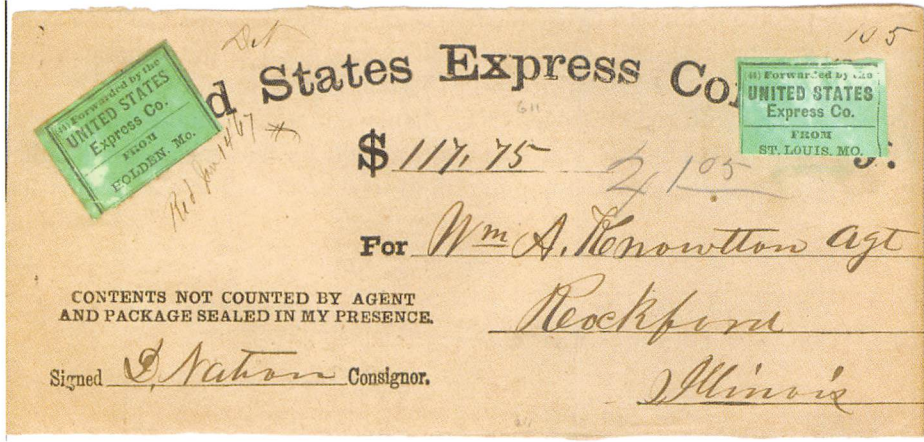 Det
105
d States Express Co
(44) Forwarded by the
UNITED STATES
Express Co.
FROM
HOLDEN, Mo.
(44) Forwarded by the
UNITED STATES
Express Co.
FROM
ST. LOUIS, MO.
Red Jan 14/67
$ 117.75
2 105
For Wm A. Knowlton Agt
Rockford
Illinois
CONTENTS NOT COUNTED BY AGENT
AND PACKAGE SEALED IN MY PRESENCE.
Signed D. Nation Consignor.